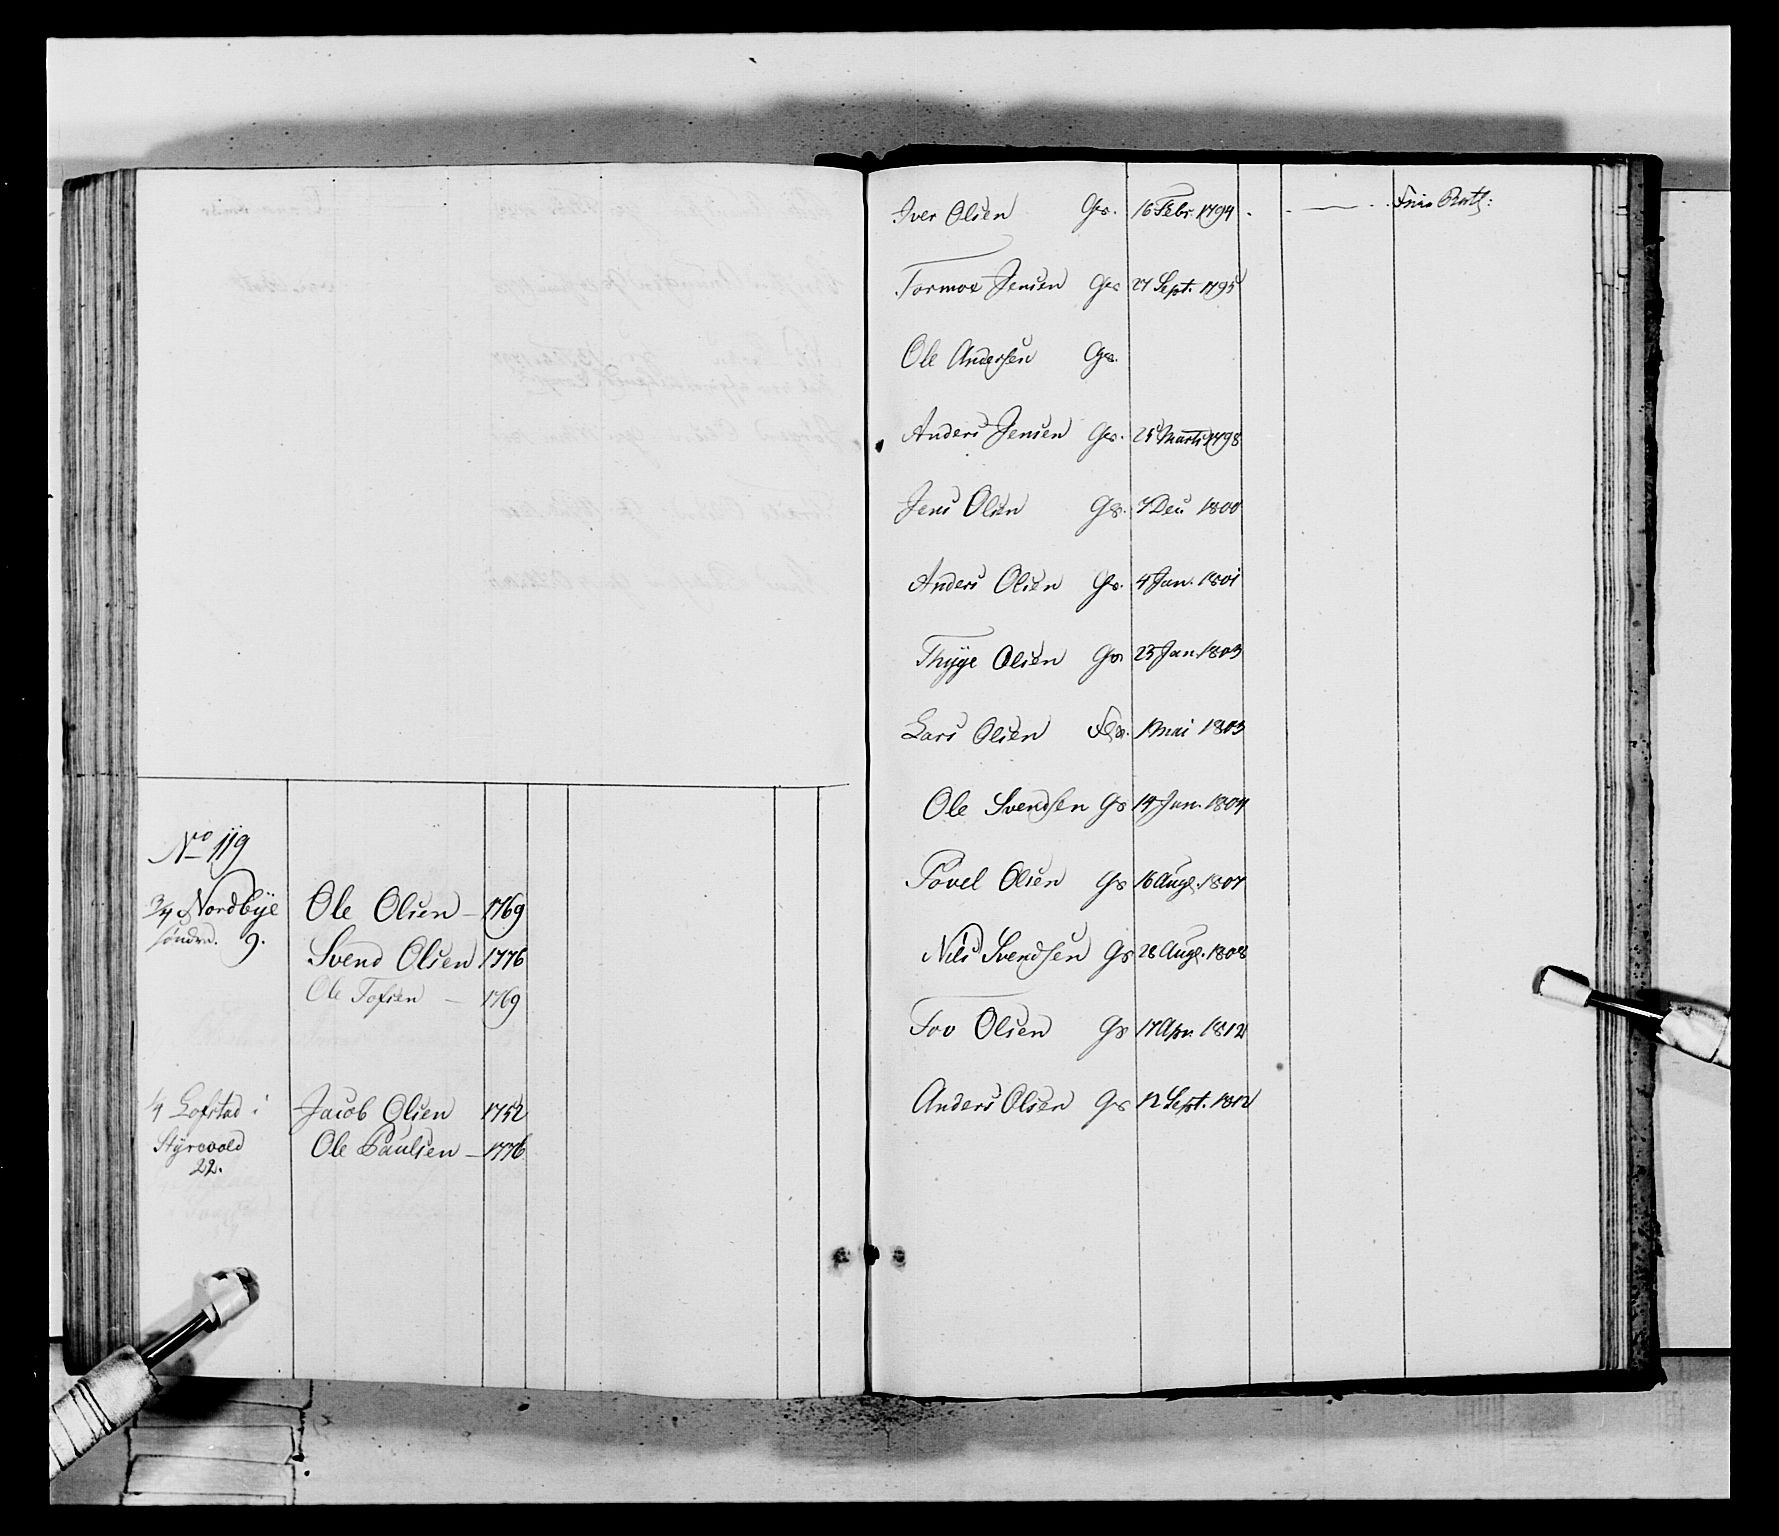 No 119
3/4 Nordbÿe Ole Olsen – 1769
söndre. 9.
Svend Olsen 1776
Ole Tofsen – 1769
1/4 Lofstad i Jacob Olsen 1752
Styrvold Ole Paulsen – 1776
22.
Iver Olsen Gs. 16 Febr. 1794 . . — . .
Tormoe Jensen Gs 27 Sept. 1795
Ole Andersen Gs.
Anders Jensen Gs. 25 Marts 1798
Jens Olsen Gs. 7 Dec 1800
Anders Olsen Gs. 4 Jan. 1801
Thÿge Olsen Gs 23 Jan. 1803
Lars Olsen 1 Mai 1803
Ole Svendsen Gs 14 Jan. 1804
Povel Olsen Gs 16 Aug. 1807
Nils Svendsen Gs 28 Aug. 1808
Tov Olsen Gs 17 Apr. 1812
Anders Olsen Gs 12 Sept. 1812